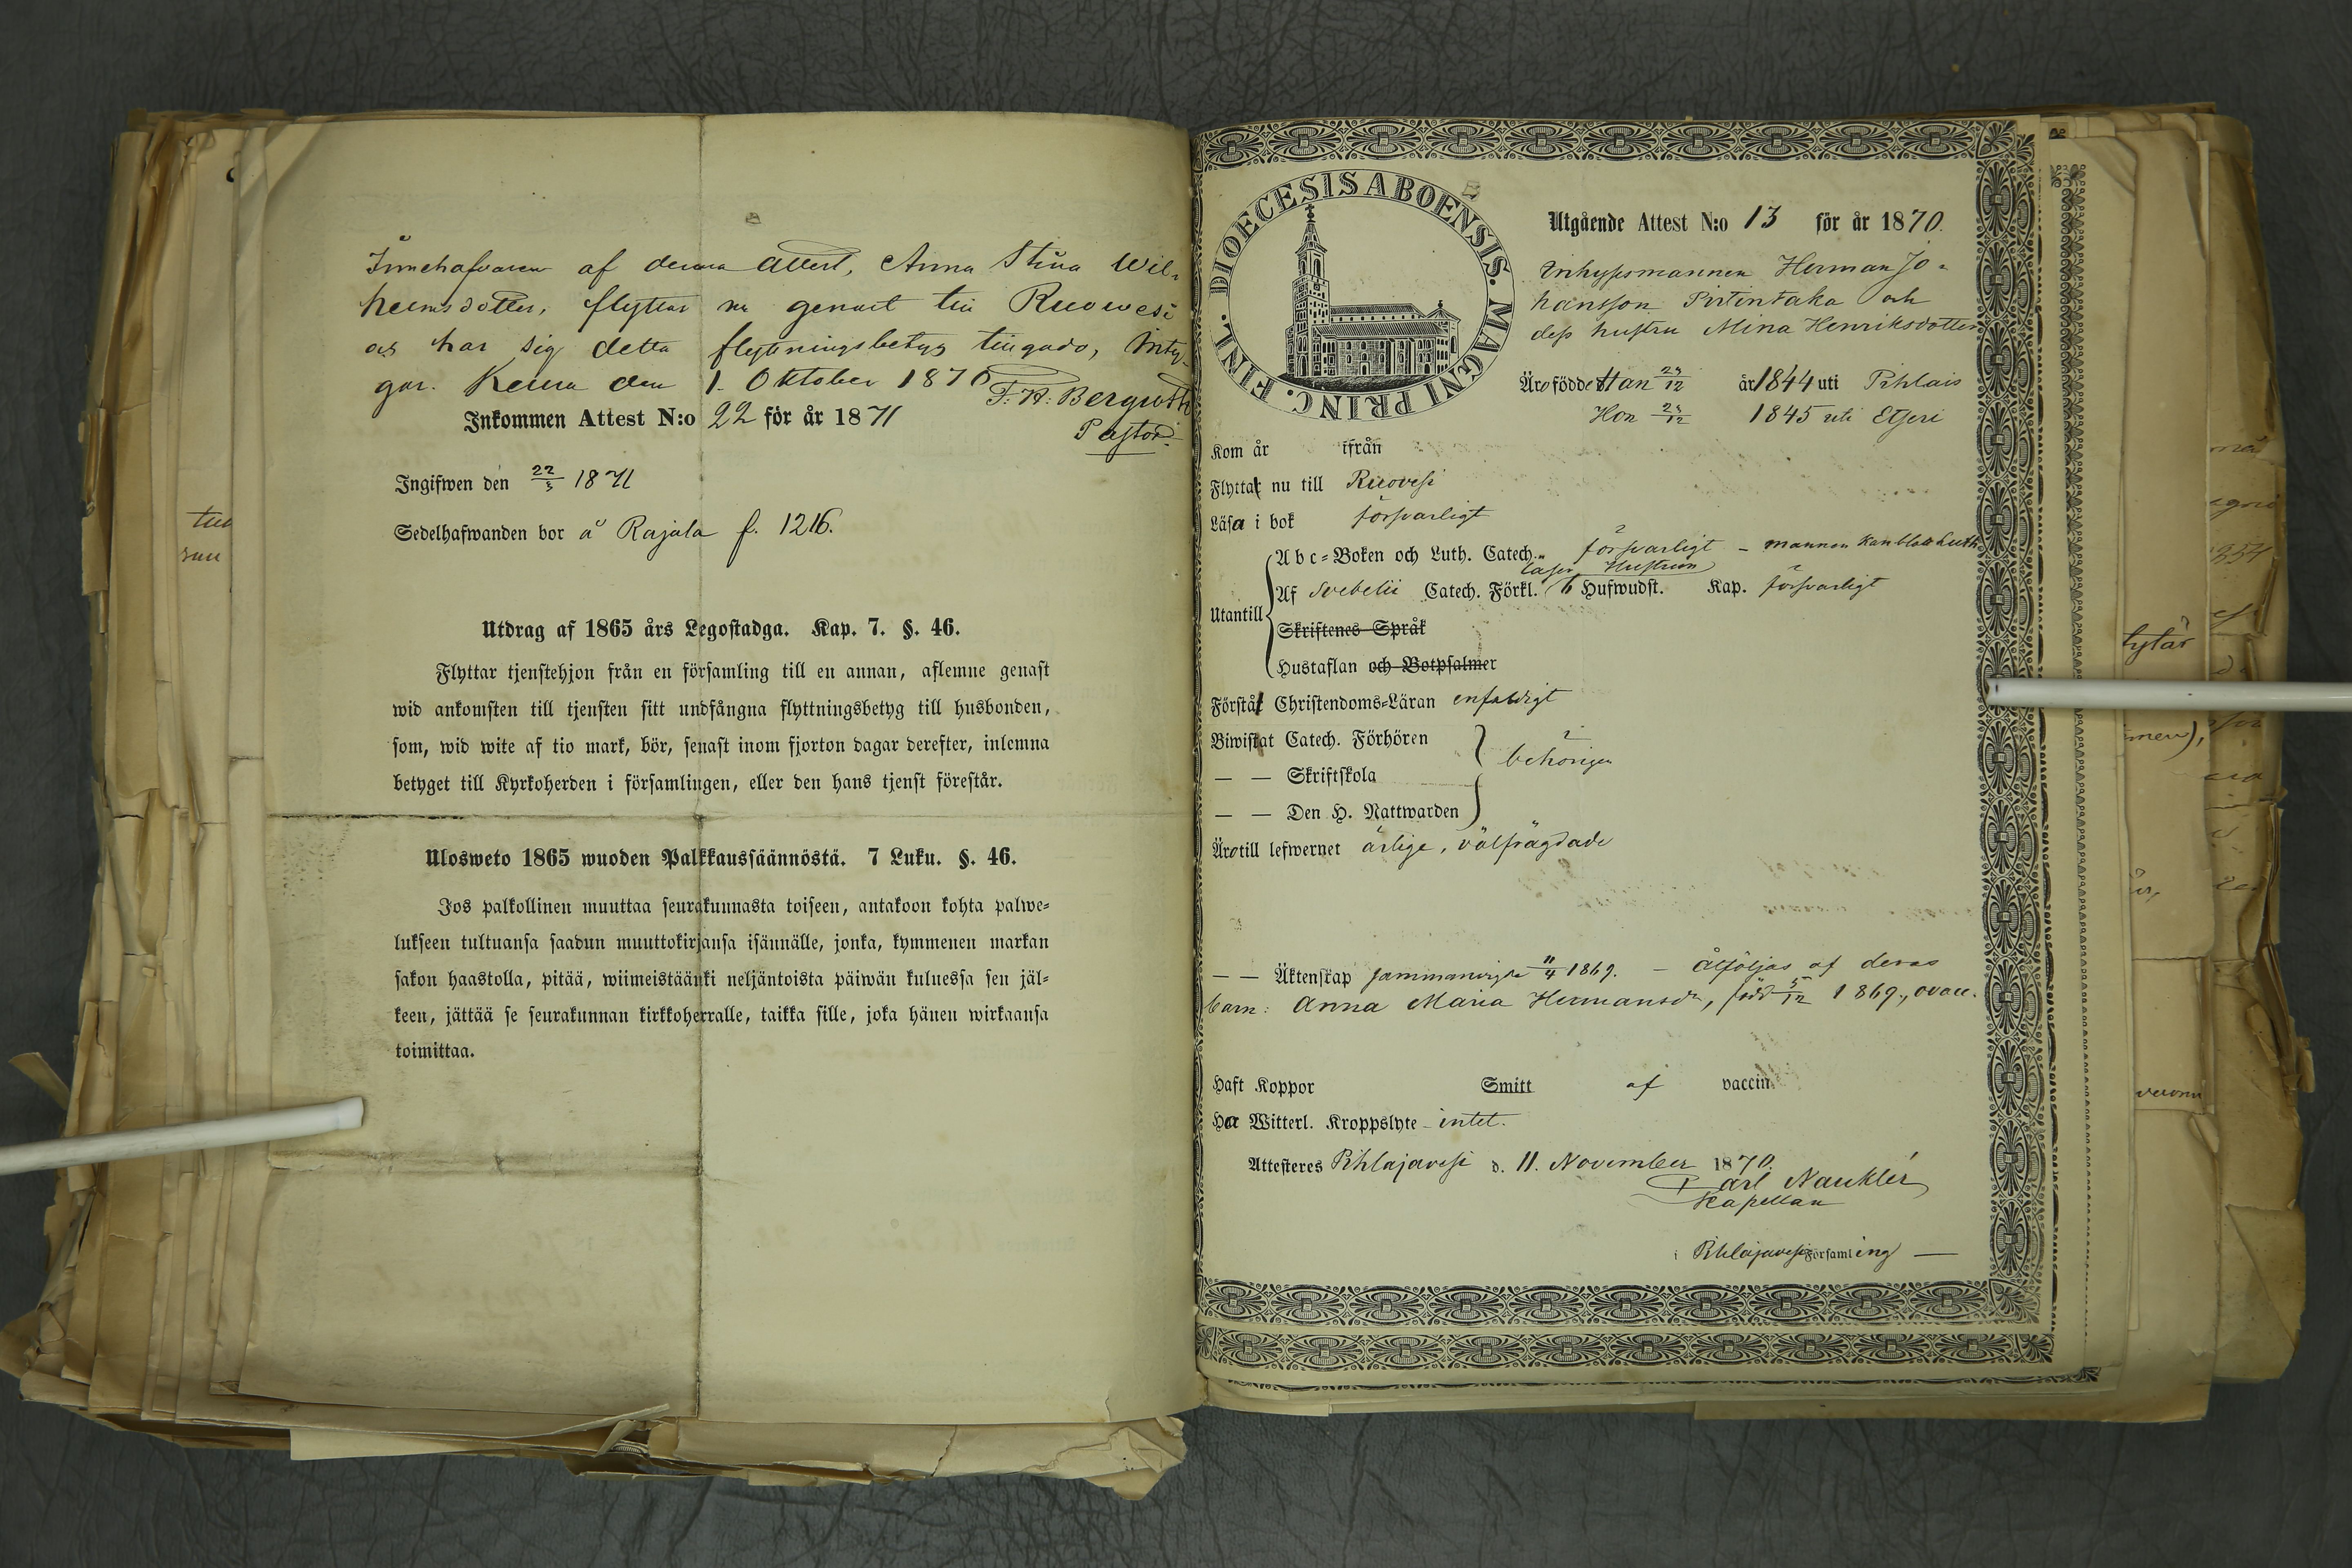 Innehafvaren af denna Attest, Anna Stina Wil-
helmsdotter, flyttar nu genast till Ruowesi
och har sig detta flyttningsbetyg tingado, Inty-
gar. Keuru den 1. Oktober 1870
F. H. Bergroth
Pastor.
Inkommen Attest N:o 22 för år 1871
Ingifwen den 22/3 1871
Sedelhafwanden bor å Rajala f. 1216.
Utdrag af 1865 års Legostadga. Kap. 7. §. 46.
Flyttar tjenstehjon från en församling till en annan, aflemne genast
wid ankomsten till tjensten sitt undfångna flyttningsbetyg till husbonden,
som, wid wite af tio mark, bör, senast inom fjorton dagar derefter, inlemna
betyget till Kyrkoherden i församlingen, eller den hans tjenst förestår.
Ulosweto 1865 wuoden Palkkaussäännöstä. 7 Luku. §. 46.
Jos palkollinen muuttaa seurakunnasta toiseen, antakoon kohta palwe-
lukseen tultuansa saadun muuttokirjansa isännälle, jonka, kymmenen markan
sakon haastolla, pitää, wiimeistäänki neljäntoista päiwän kuluessa sen jäl-
keen, jättää se seurakunnan kirkkoherralle, taikka sille, joka hänen wirkaansa
toimittaa.
DIOECESIS ABOENSIS. MAGNI PRINC. FINL.
Utgående Attest N:o 13 för år 1870.
Inhysesmannen Herman Jo-
hansson Pirtintaka och
dess hustru Mina Henriksdotter
Äro födde Han 23/12 år 1844 uti Pihlais
Hon 23/12 1845 uti Etseri
Kom år ifrån
Flytta nu till Ruovesi
Läsa i bok försvarligt
Utantill
Abc-Boken och Luth. Catech. försvarligt – mannen kan blott Luth.
läser Hustrun
Af Svebelii Catech. Förkl. 6 Hufwudst. Kap. försvarligt
Skriftenes Språk
Hustaflan och Botpsalmer
Förstå Christendoms-Läran enfaldigt
Biwistat Catech. Förhören
behörigen
— — Skriftskola
— — Den H. Nattwarden
Äro till lefwernet ärlige, välfrägdade
— — Äktenskap sammanvigde 11/4 1869. – Åtföljas af deras
barn: Anna Maria Hermansdr, född 5/12 1869, ovacc.
Haft Koppor Smitt af vaccin
Ha Witterl. Kroppslyte – intet.
Attesteras Pihlajavesi d. 11. November 1870.
Carl Nauklér
Kapellan
i Pihlajavesi Församling —